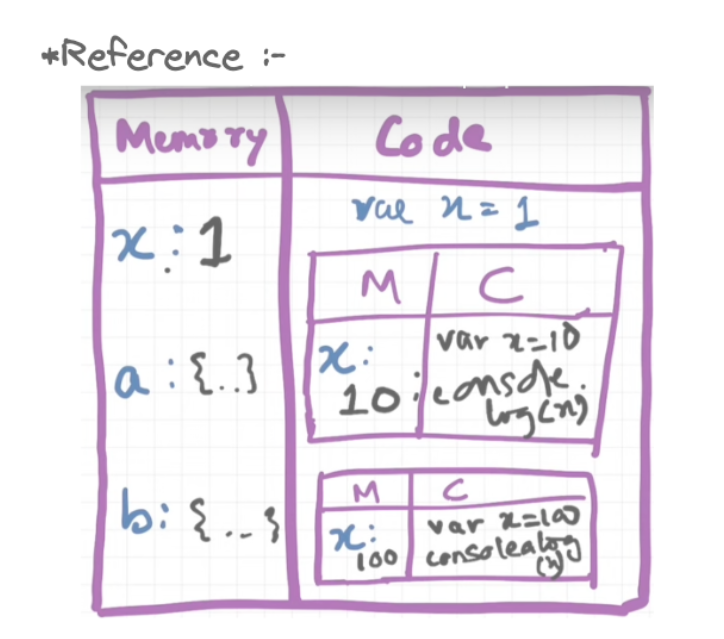 *Reference :-
Memory
Code
x : 1
a : {..}
b : {...}
var x = 1
M
C
x :
10
var x=10
console.
log(x)
M
C
x :
100
var x=100
console.log
(x)